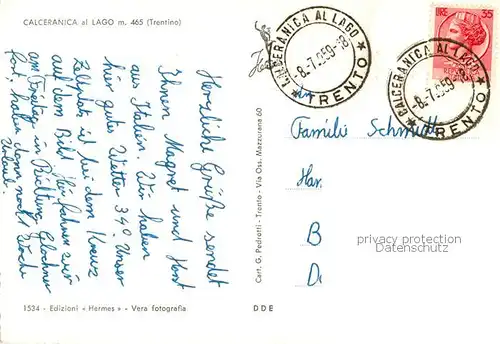 CALCERANICA al LAGO m. 465 (Trentino)
Herzliche Grüße sendet
Ihnen Magret und Horst
aus Italien. Wir haben
hier gutes Wetter 34°. Unser
Zeltplatz ist bei dem Kreuz
auf dem Bild. Wir fahren
am Freitag in Richtung Glockner
fort, haben dann noch 1 Woche
Urlaub.
1534 - Edizioni « Hermes » - Vera fotografia
Cart. G. Pedrotti - Trento - Via Oss. Mazzurana 60
DDE
CALCERANICA AL LAGO
8-7.959-18
* TRENTO *
LIRE 35
CALCERANICA AL LAGO
8-7.959-18
* TRENTO *
An
Familie Schmidt
Har
B
D
privacy protection
AKPool.de